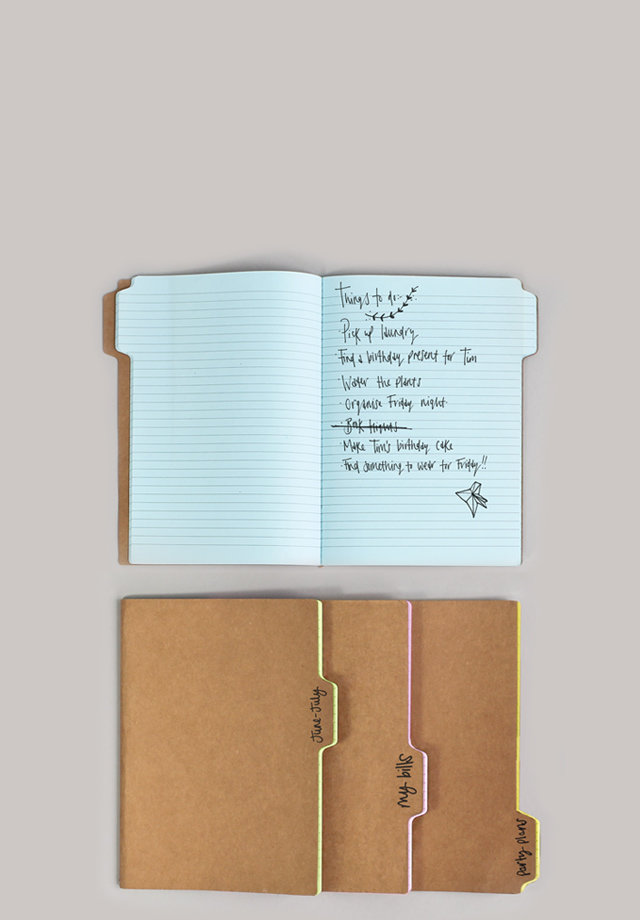 Things to do:
Pick up laundry
· Find a birthday present for Tim
· Water the plants
· Organise Friday night
· Book
· Make Tim's birthday cake
· Find something to wear for Friday!!
June-July
my bills
party plans